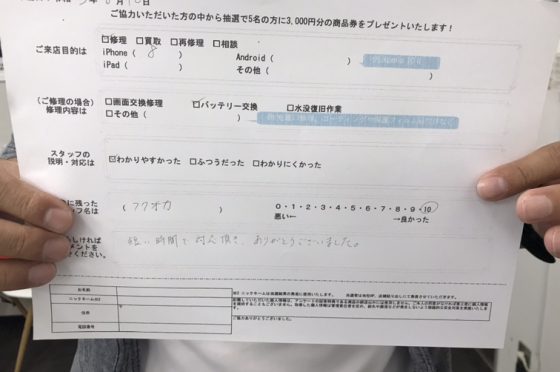 ご協力いただいた方の中から抽選で5名の方に3,000円分の商品券をプレゼントいたします！
ご来店目的は
☑修理 □買取 □再修理 □相談
iPhone（ 8 ） Android（ ）
iPad（ ） その他（ ）
（ご修理の場合）
修理内容は
□画面交換修理 ☑バッテリー交換 □水没復旧作業
□その他（ ）
スタッフの
説明・対応は
☑わかりやすかった □ふつうだった □わかりにくかった
に残った
フ名は
（ フクオカ ） 0・1・2・3・4・5・6・7・8・9・10
悪い← →良かった
しければ
メントを
ください。
短い時間で対応頂き、ありがとうございました。
お名前
ニックネーム※2
住所 〒
電話番号
ご協力ありがとうございました。